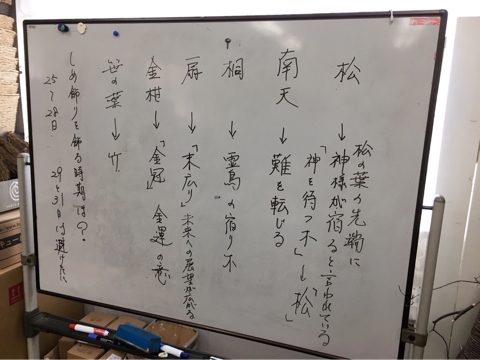 松 → 松の葉の先端に
神様が宿ると言われている
「神を待つ木」も「松」
南天 → 難を転じる
桐 → 霊鳥の宿り木
扇 → 「末広り」未来への展望が広がる
金柑 → 「金冠」 金運の意
笹の葉 → 竹
しめ飾りを飾る時期は?
25〜28日 29と31日は避けたい